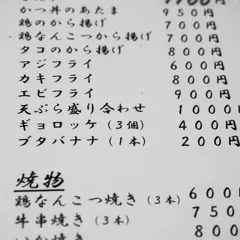 かつ丼のあたま 950円
鶏のから揚げ 700円
鶏なんこつから揚げ 700円
タコのから揚げ 800円
アジフライ
カキフライ 800円
エビフライ 900円
天ぷら盛り合わせ 1000
ギョロッケ(3個) 400円
ブタバナナ(1本) 200円
焼物
鶏なんこつ焼き(3本) 600
牛串焼き(3本) 750
800